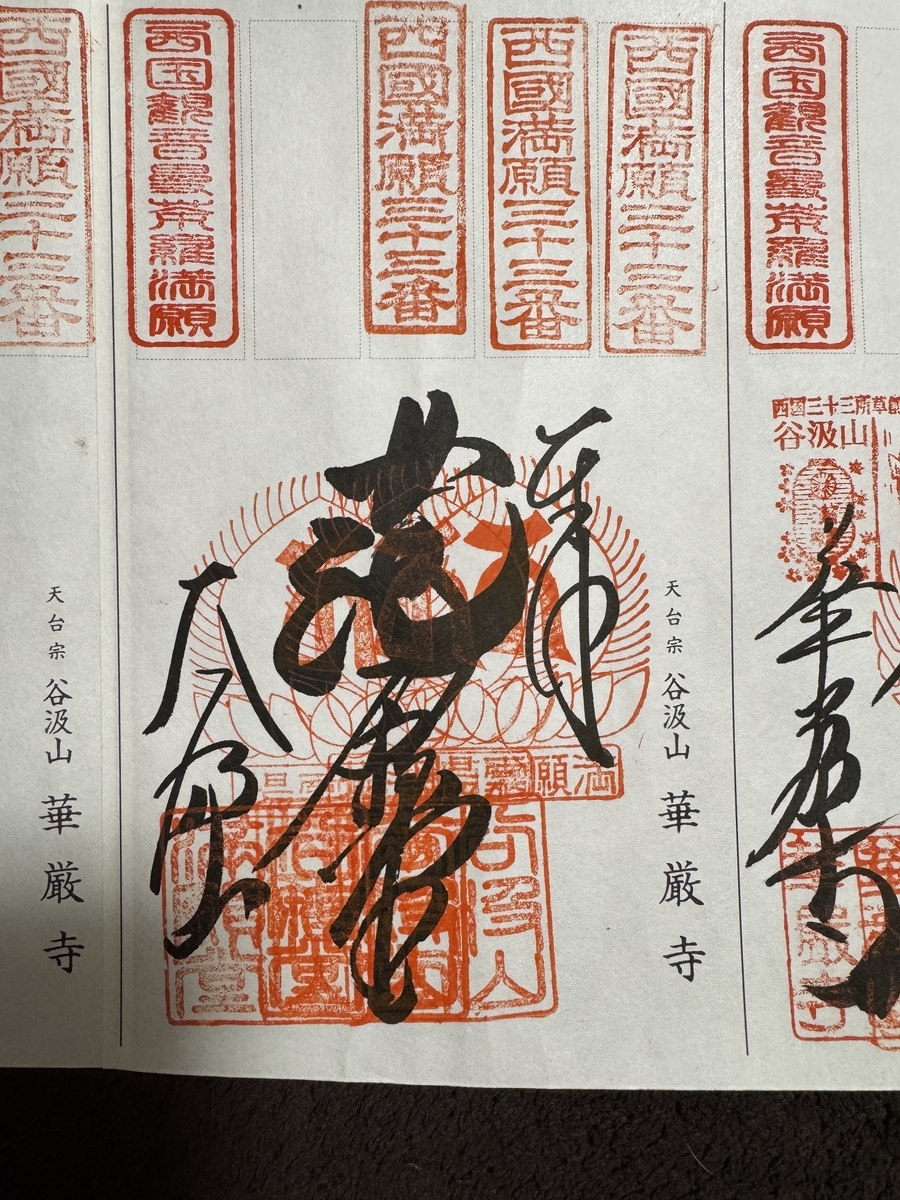 西国観音曼荼羅満願
西國満願三十三番
西國満願三十三番
西國満願三十三番
西国観音曼荼羅満願
西國満願三十三番
西国三十三所草創
谷汲山
華厳寺
天台宗 谷汲山 華厳寺
奉拝
谷汲山
満願堂
天台宗 谷汲山 華厳寺